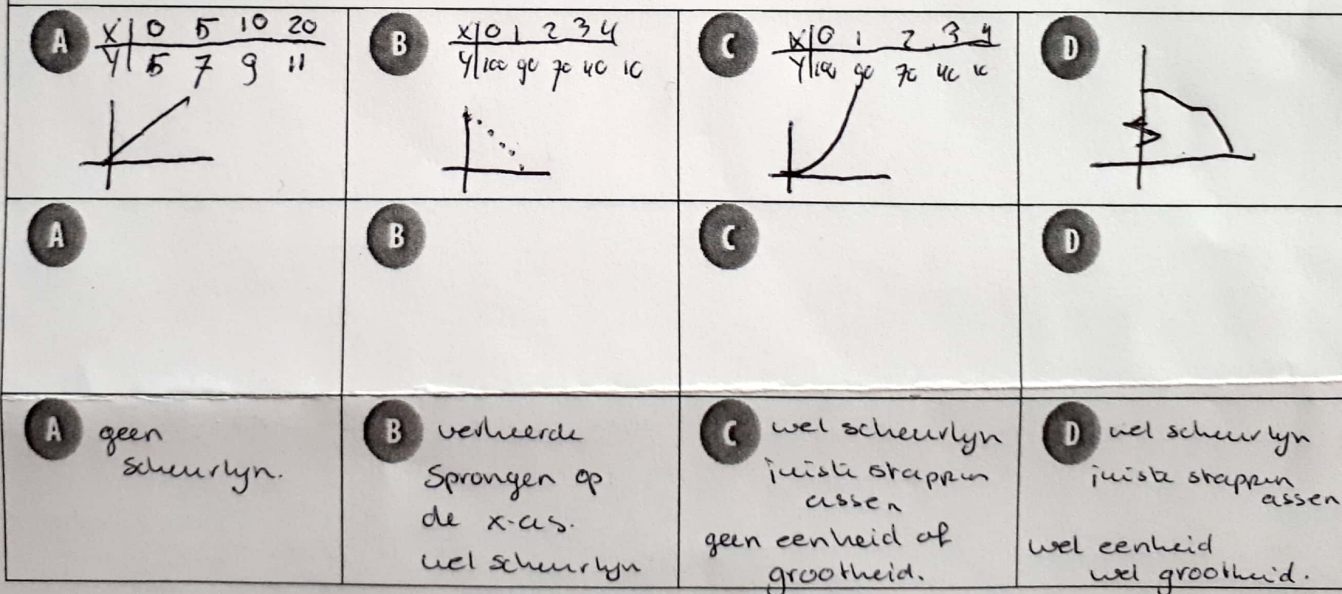 A
X 0 5 10 20
Y 5 7 9 11
B
X 0 1 2 3 4
Y 100 90 70 40 10
C
X 0 1 2 3 4
Y 100 90 70 40 10
D
A
B
C
D
A geen
scheurlyn.
B verkeerde
Sprongen op
de x-as.
wel scheurlyn
C wel scheurlyn
juiste stappen
assen
geen eenheid of
grootheid.
D wel scheurlyn
juiste stappen
assen
wel eenheid
wel grootheid.